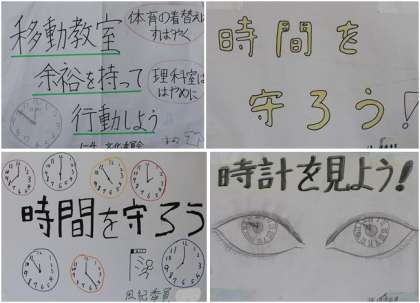 移動教室
体育の着替えは
すばやく
余裕を持って
理科室は
はやめに
行動しよう
時間を
守ろう!
時間を守ろう
風紀委員
時計を見よう!